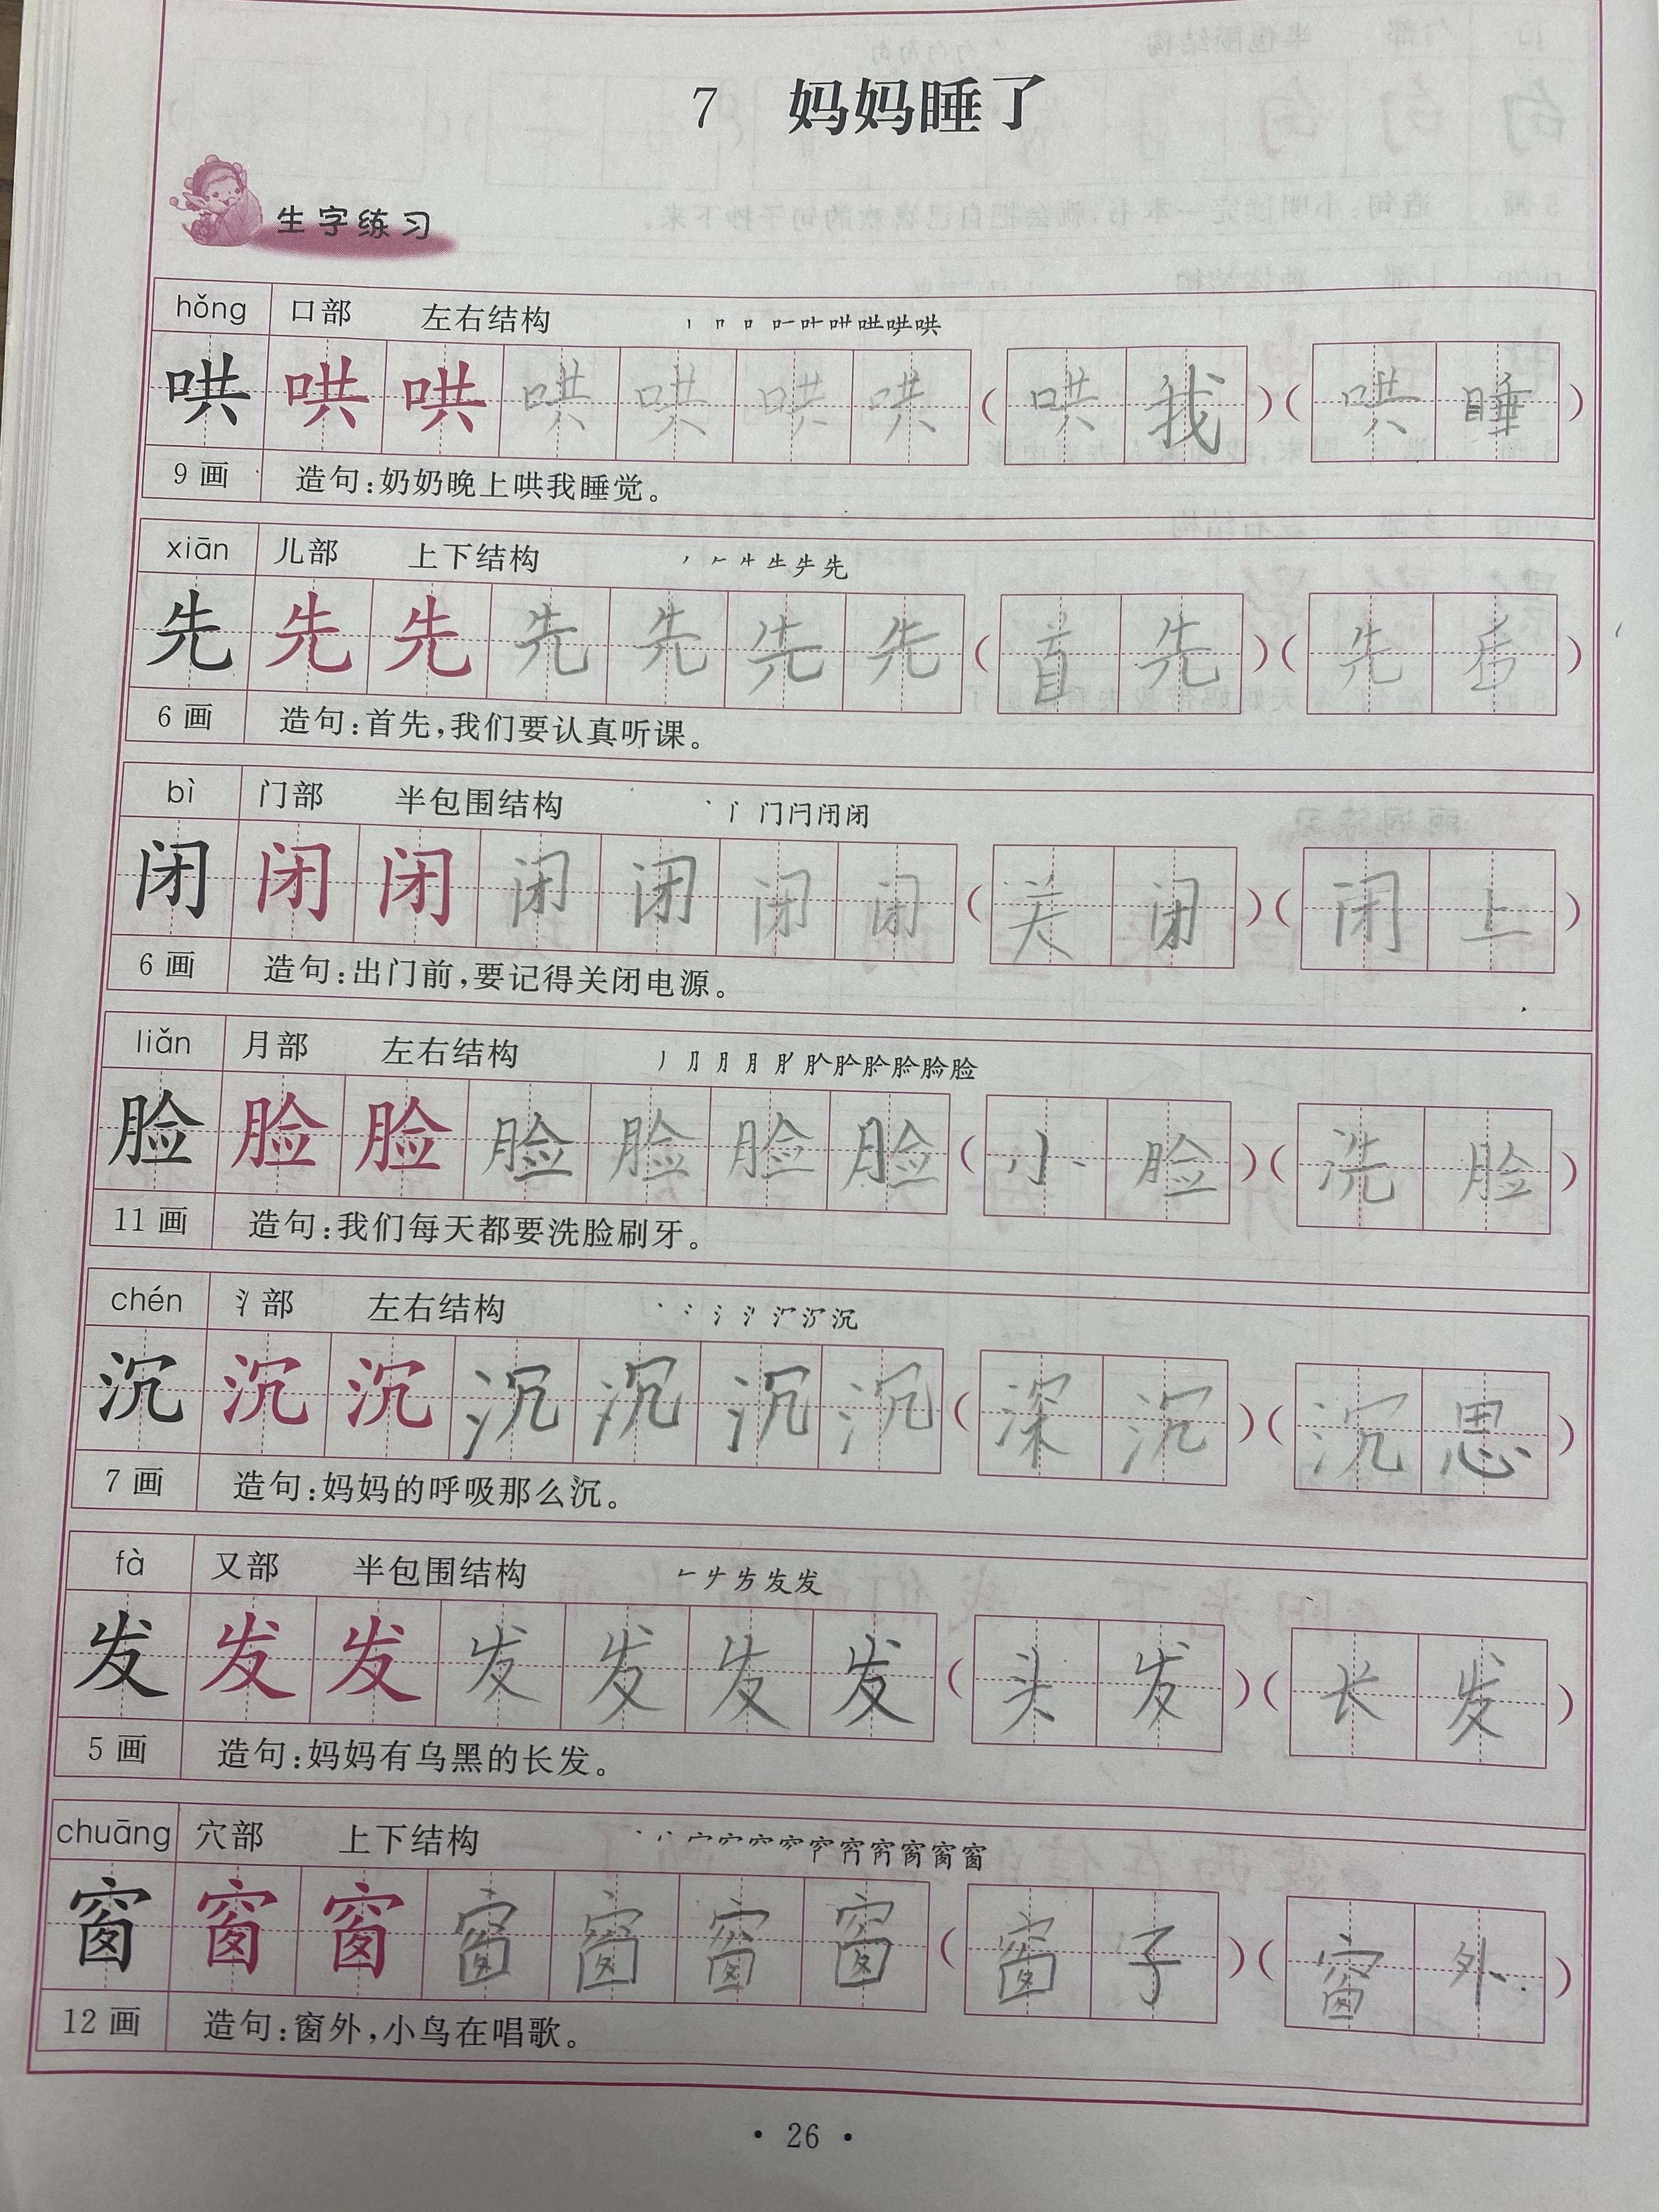 7 妈妈睡了
生字练习
hǒng 口部 左右结构 丨 哄
哄 哄 哄 哄 哄 哄 哄 (哄我)(哄睡)
9画 造句:奶奶晚上哄我睡觉。
xiān 儿部 上下结构 生 先
先 先 先 先 先 先 先 (首先)(先后)
6画 造句:首先,我们要认真听课。
bì 门部 半包围结构 丶 门 闩 闭 闭
闭 闭 闭 闭 闭 闭 闭 (关闭)(闭上)
6画 造句:出门前,要记得关闭电源。
liǎn 月部 左右结构 月 脸
脸 脸 脸 脸 脸 脸 脸 (小脸)(洗脸)
11画 造句:我们每天都要洗脸刷牙。
chén 氵部 左右结构 丶 冫 氵 沉
沉 沉 沉 沉 沉 沉 沉 (深沉)(沉思)
7画 造句:妈妈的呼吸那么沉。
fà 又部 半包围结构 发 发
发 发 发 发 发 发 发 (头发)(长发)
5画 造句:妈妈有乌黑的长发。
chuāng 穴部 上下结构 丶 宀 窗 窗
窗 窗 窗 窗 窗 窗 窗 (窗子)(窗外)
12画 造句:窗外,小鸟在唱歌。
·26·